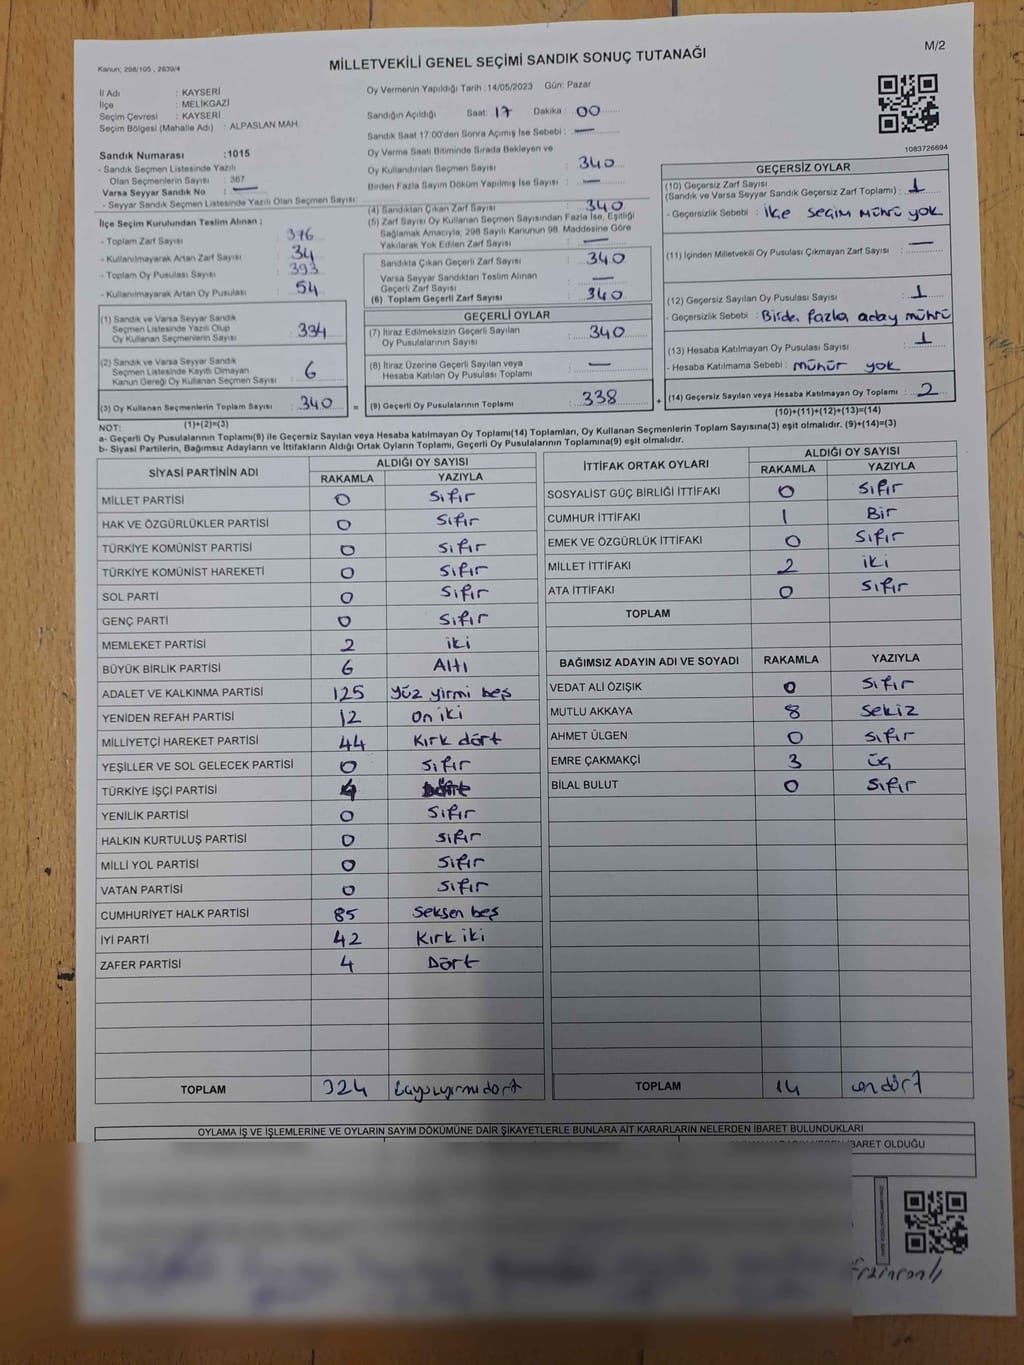 M/2
Kanun; 298/105 , 2839/4
MİLLETVEKİLİ GENEL SEÇİMİ SANDIK SONUÇ TUTANAĞI
İl Adı : KAYSERİ
İlçe : MELİKGAZİ
Seçim Çevresi : KAYSERİ
Seçim Bölgesi (Mahalle Adı) : ALPASLAN MAH.
Sandık Numarası :1015
- Sandık Seçmen Listesinde Yazılı
Olan Seçmenlerin Sayısı : 367
Varsa Seyyar Sandık No : —
- Seyyar Sandık Seçmen Listesinde Yazılı Olan Seçmen Sayısı:
Oy Vermenin Yapıldığı Tarih :14/05/2023 Gün: Pazar
Sandığın Açıldığı Saat: 17 Dakika : 00
Sandık Saat 17:00'den Sonra Açımış İse Sebebi : —
Oy Verme Saati Bitiminde Sırada Bekleyen ve
Oy Kullandırılan Seçmen Sayısı : 340
Birden Fazla Sayım Döküm Yapılmış İse Sayısı : —
1083726694
İlçe Seçim Kurulundan Teslim Alınan ;
- Toplam Zarf Sayısı : 376
- Kullanılmayarak Artan Zarf Sayısı : 34
- Toplam Oy Pusulası Sayısı : 393
- Kullanılmayarak Artan Oy Pusulası : 54
(1) Sandık ve Varsa Seyyar Sandık
Seçmen Listesinde Yazılı Olup
Oy Kullanan Seçmenlerin Sayısı : 334
(2) Sandık ve Varsa Seyyar Sandık
Seçmen Listesinde Kayıtlı Olmayan
Kanun Gereği Oy Kullanan Seçmen Sayısı : 6
(3) Oy Kullanan Seçmenlerin Toplam Sayısı : 340
(1)+(2)=(3)
(4) Sandıktan Çıkan Zarf Sayısı : 340
(5) Zarf Sayısı Oy Kullanan Seçmen Sayısından Fazla İse, Eşitliği
Sağlamak Amacıyla, 298 Sayılı Kanunun 98. Maddesine Göre
Yakılarak Yok Edilen Zarf Sayısı : —
Sandıkta Çıkan Geçerli Zarf Sayısı : 340
Varsa Seyyar Sandıktan Teslim Alınan
Geçerli Zarf Sayısı : —
(6) Toplam Geçerli Zarf Sayısı : 340
GEÇERLİ OYLAR
(7) İtiraz Edilmeksizin Geçerli Sayılan
Oy Pusulalarının Sayısı : 340
(8) İtiraz Üzerine Geçerli Sayılan veya
Hesaba Katılan Oy Pusulası Toplamı : —
= (9) Geçerli Oy Pusulalarının Toplamı : 338
GEÇERSİZ OYLAR
(10) Geçersiz Zarf Sayısı
(Sandık ve Varsa Seyyar Sandık Geçersiz Zarf Toplamı) : 1
- Geçersizlik Sebebi : ilçe seçim mührü yok
(11) İçinden Milletvekili Oy Pusulası Çıkmayan Zarf Sayısı : —
(12) Geçersiz Sayılan Oy Pusulası Sayısı : 1
- Geçersizlik Sebebi : Birden fazla aday mührü
(13) Hesaba Katılmayan Oy Pusulası Sayısı : 1
- Hesaba Katılmama Sebebi : mühür yok
+ (14) Geçersiz Sayılan veya Hesaba Katılmayan Oy Toplamı : 2
(10)+(11)+(12)+(13)=(14)
NOT:
a- Geçerli Oy Pusulalarının Toplamı(9) ile Geçersiz Sayılan veya Hesaba katılmayan Oy Toplamı(14) Toplamları, Oy Kullanan Seçmenlerin Toplam Sayısına(3) eşit olmalıdır. (9)+(14)=(3)
b- Siyasi Partilerin, Bağımsız Adayların ve İttifakların Aldığı Ortak Oyların Toplamı, Geçerli Oy Pusulalarının Toplamına(9) eşit olmalıdır.
SİYASİ PARTİNİN ADI ALDIĞI OY SAYISI
RAKAMLA YAZIYLA
MİLLET PARTİSİ 0 Sıfır
HAK VE ÖZGÜRLÜKLER PARTİSİ 0 Sıfır
TÜRKİYE KOMÜNİST PARTİSİ 0 Sıfır
TÜRKİYE KOMÜNİST HAREKETİ 0 Sıfır
SOL PARTİ 0 Sıfır
GENÇ PARTİ 0 Sıfır
MEMLEKET PARTİSİ 2 iki
BÜYÜK BİRLİK PARTİSİ 6 Altı
ADALET VE KALKINMA PARTİSİ 125 Yüz yirmi beş
YENİDEN REFAH PARTİSİ 12 On iki
MİLLİYETÇİ HAREKET PARTİSİ 44 Kırk dört
YEŞİLLER VE SOL GELECEK PARTİSİ 0 Sıfır
TÜRKİYE İŞÇİ PARTİSİ 4
YENİLİK PARTİSİ 0 Sıfır
HALKIN KURTULUŞ PARTİSİ 0 Sıfır
MİLLİ YOL PARTİSİ 0 Sıfır
VATAN PARTİSİ 0 Sıfır
CUMHURİYET HALK PARTİSİ 85 Seksen beş
İYİ PARTİ 42 Kırk iki
ZAFER PARTİSİ 4 Dört
TOPLAM 324
İTTİFAK ORTAK OYLARI ALDIĞI OY SAYISI
RAKAMLA YAZIYLA
SOSYALİST GÜÇ BİRLİĞİ İTTİFAKI 0 Sıfır
CUMHUR İTTİFAKI 1 Bir
EMEK VE ÖZGÜRLÜK İTTİFAKI 0 Sıfır
MİLLET İTTİFAKI 2 iki
ATA İTTİFAKI 0 Sıfır
TOPLAM
BAĞIMSIZ ADAYIN ADI VE SOYADI RAKAMLA YAZIYLA
VEDAT ALİ ÖZIŞIK 0 Sıfır
MUTLU AKKAYA 8 Sekiz
AHMET ÜLGEN 0 Sıfır
EMRE ÇAKMAKÇİ 3 üç
BİLAL BULUT 0 Sıfır
TOPLAM 14 on dört
OYLAMA İŞ VE İŞLEMLERİNE VE OYLARIN SAYIM DÖKÜMÜNE DAİR ŞİKAYETLERLE BUNLARA AİT KARARLARIN NELERDEN İBARET BULUNDUKLARI
İBARET OLDUĞU